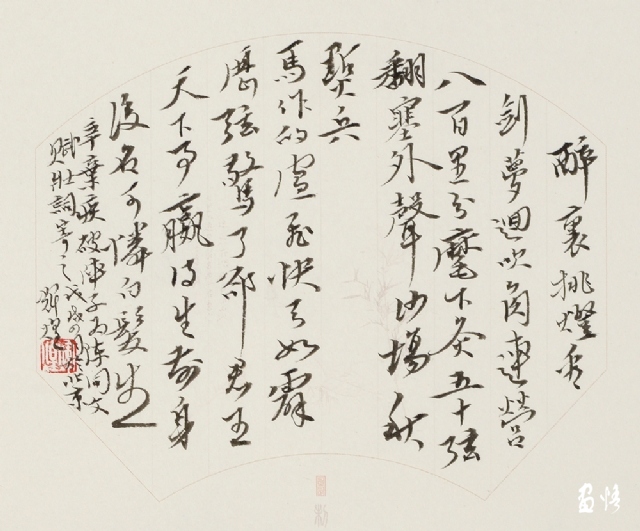 醉裏挑燈看
劍夢迴吹角連營
八百里分麾下炙五十弦
翻塞外聲沙場秋
點兵
馬作的盧飛快弓如霹
靂弦驚了卻君王
天下事贏得生前身
後名可憐白髮生
辛棄疾破陣子為陳同父
賦壯詞寄之戊戌北京